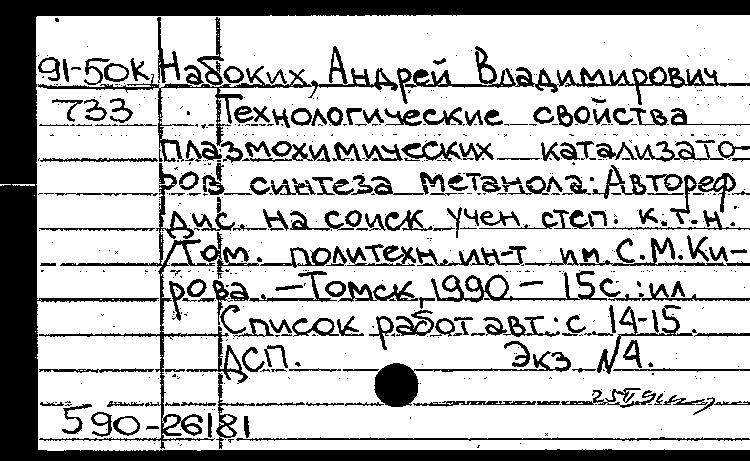 91-50к Набоких, Андрей Владимирович
733 Технологические свойства
плазмохимических катализато-
ров синтеза метанола: Автореф.
дис. на соиск. учен. степ. к.т.н.
/Том. политехн. ин-т им. С.М.Ки-
рова. – Томск, 1990. – 15с.: ил.
Список работ авт.: с. 14-15.
ДСП. Экз. N4.
590-26181